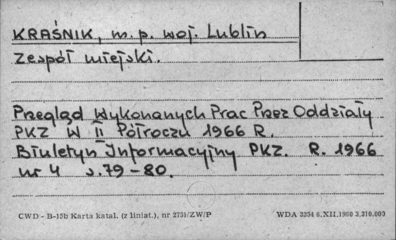 KRAŚNIK, m.p. woj. Lublin
Zespół miejski.
Przegląd Wykonanych Prac Przez Oddziały
PKZ W II Półroczu 1966 R.
Biuletyn Informacyjny PKZ. R. 1966
nr 4 s. 79-80.
CWD - B-15b Karta katal. (z liniat.), nr 2731/ZW/P WDA 3354 6.XII.1960 3.310.000